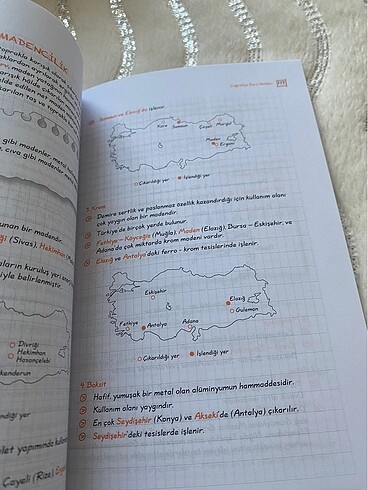 MADENCİLİK
toprakla karışık
gibi madenler metal
civa gibi madenler
unan bir madendir.
(Sivas), Hekimhan
aların kuruluş yeri
iyle belirlenmiştir.
Divriği
Hekimhan
Hasançelebi
skenderun
ndiği yer
let yapımında
Çayeli (Rize)
Coğrafya Ders Notları
Samsun ve Elazığ'da işlenir.
Küre
Samsun
Çayeli
Murgul
Maden
Ergani
Çıkarıldığı yer
İşlendiği yer
3. Krom
Demire sertlik ve paslanmaz özellik kazandırdığı için kullanım alanı
çok yaygın olan bir madendir.
Türkiye'de birçok yerde bulunur.
Fethiye – Köyceğiz (Muğla), Maden (Elazığ), Bursa – Eskişehir, ve
Adana'da çok miktarda krom madeni vardır.
Elazığ ve Antalya'daki ferro - krom tesislerinde işlenir.
Eskişehir
Elazığ
Guleman
Fethiye
Antalya
Adana
Çıkarıldığı yer
İşlendiği yer
4. Boksit
Hafif, yumuşak bir metal olan alüminyumun hammaddesidir.
Kullanım alanı yaygındır.
En çok Seydişehir (Konya) ve Akseki'de (Antalya) çıkarılır.
Seydişehir'deki tesislerde işlenir.